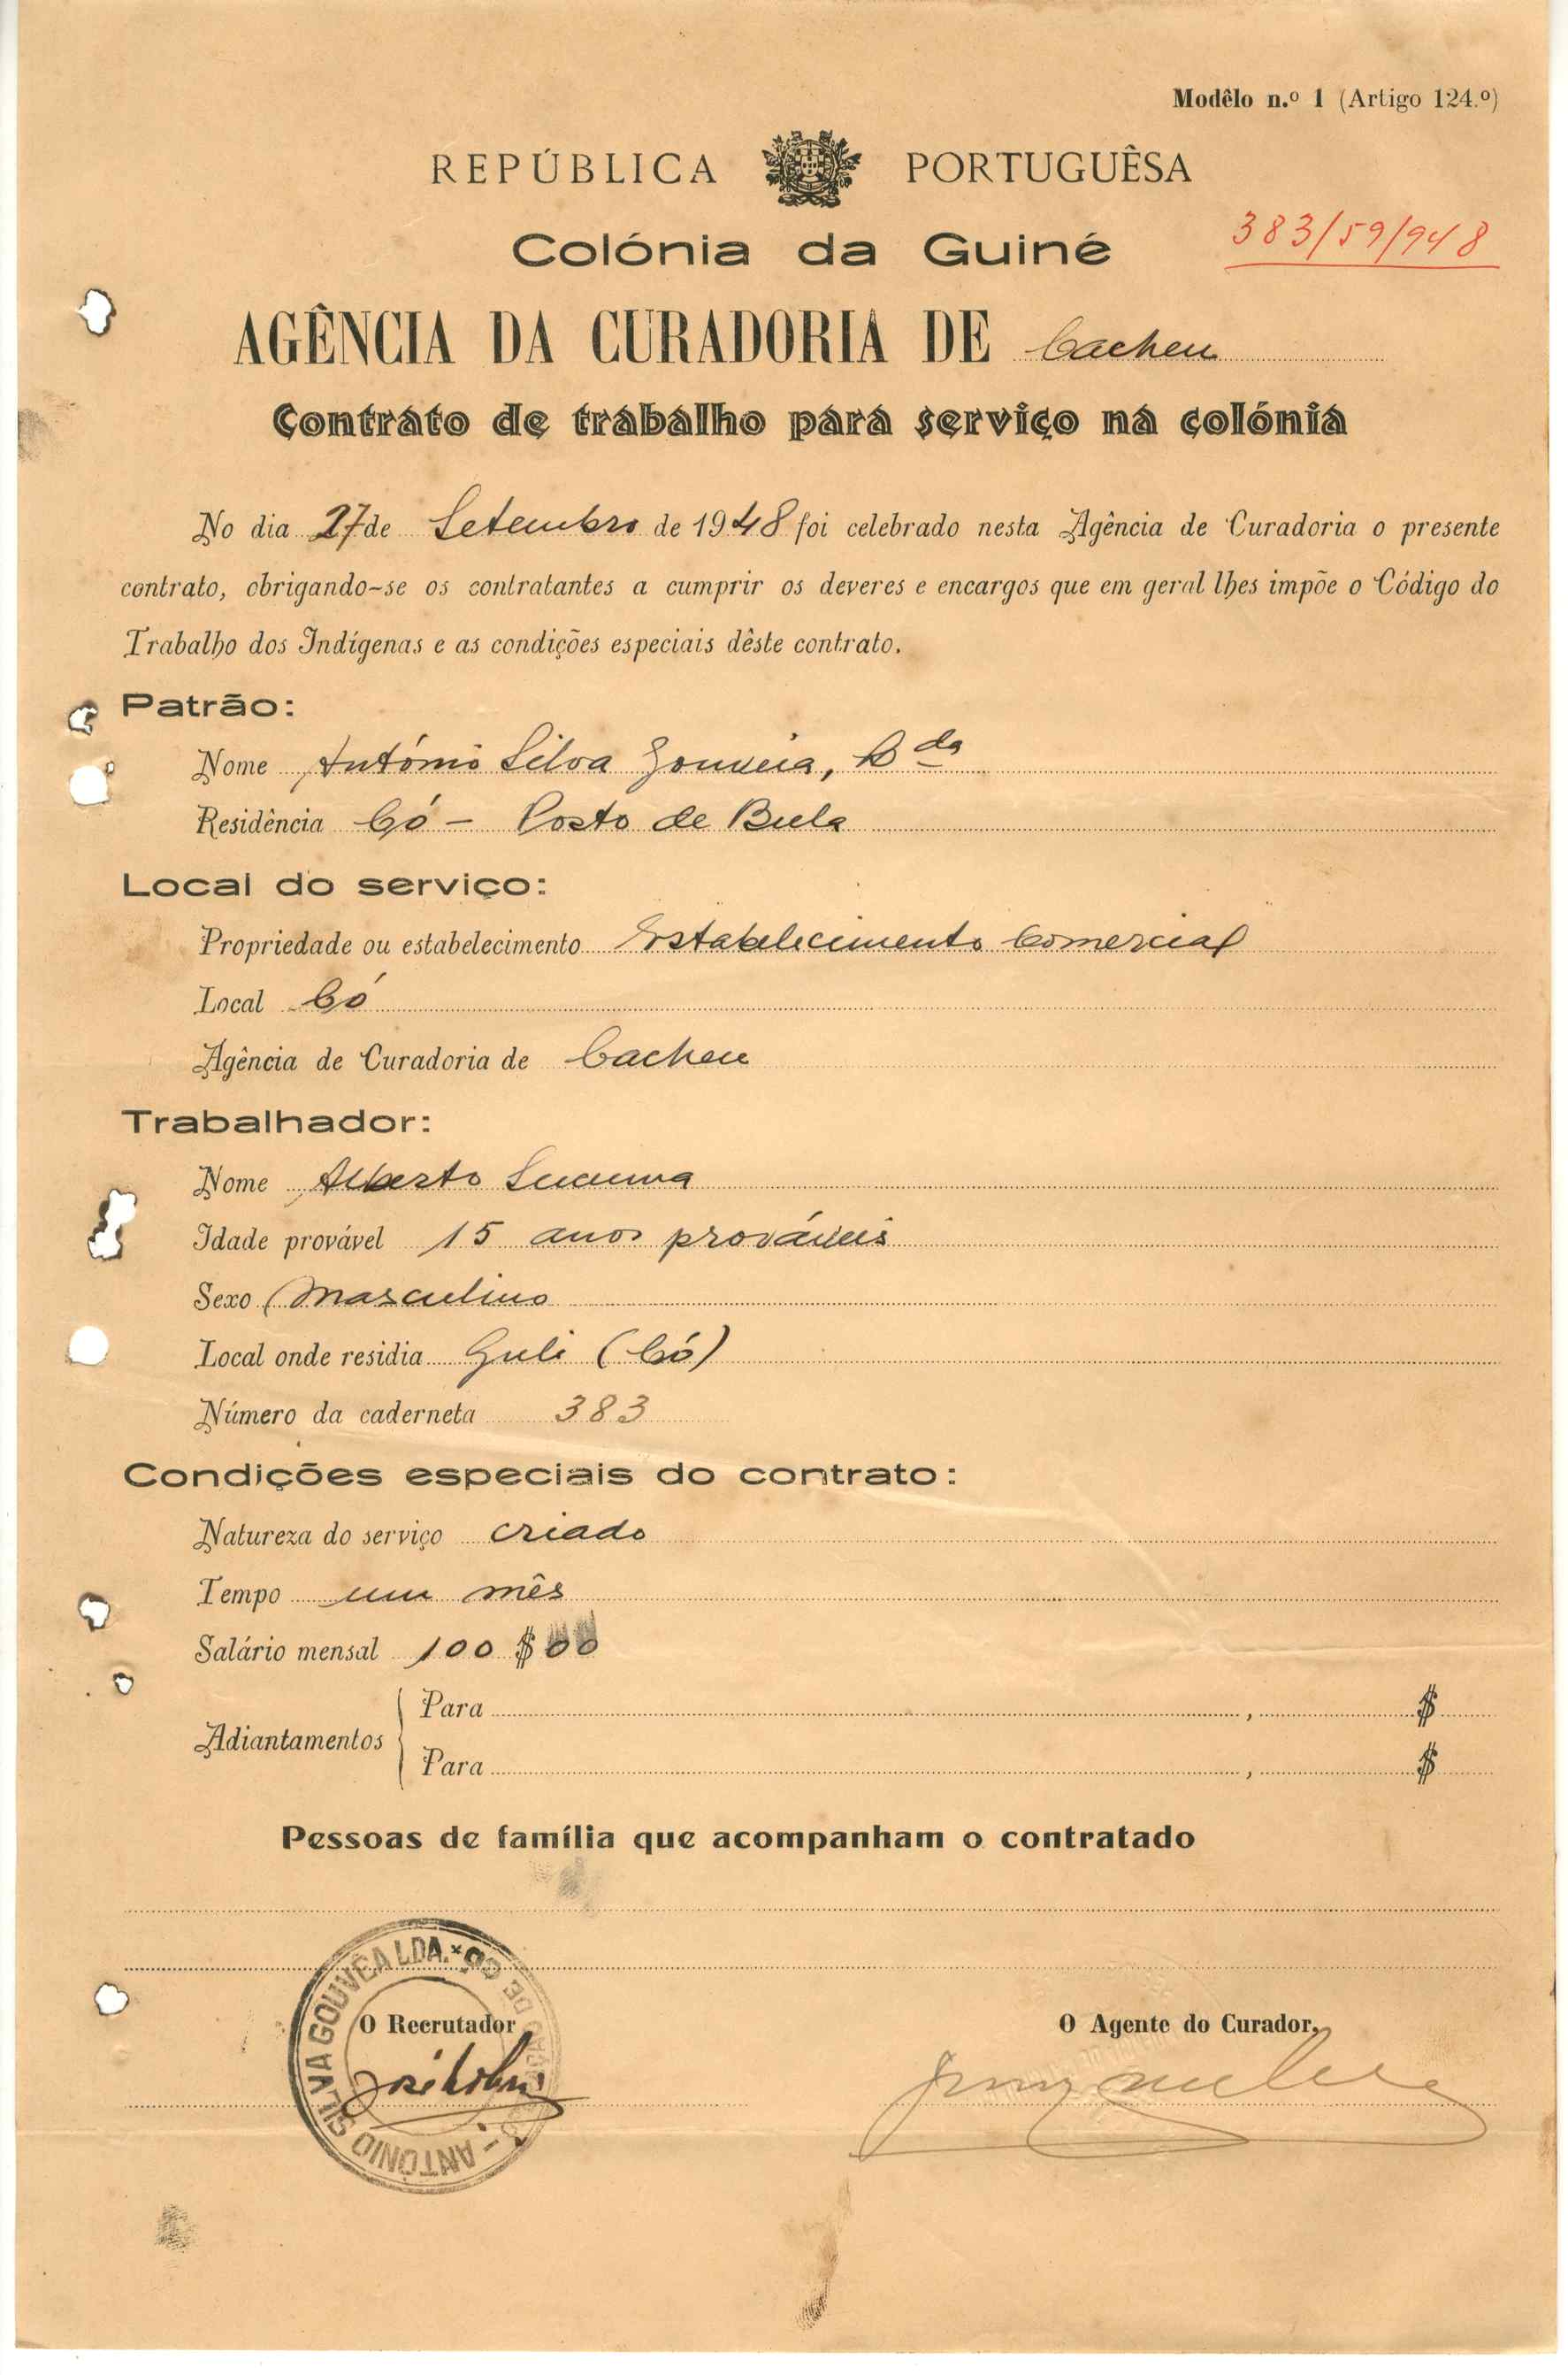 Modêlo n.º 1 (Artigo 124.º)
REPÚBLICA PORTUGUÊSA
Colónia da Guiné
383/59/948
AGÊNCIA DA CURADORIA DE Cacheu
Contrato de trabalho para serviço na colónia
No dia 27 de Setembro de 1948 foi celebrado nesta Agência de Curadoria o presente
contrato, obrigando-se os contratantes a cumprir os deveres e encargos que em geral lhes impõe o Código do
Trabalho dos Indígenas e as condições especiais dêste contrato.
Patrão:
Nome António Silva Gouveia, Lda
Residência Có - Posto de Bula
Local do serviço:
Propriedade ou estabelecimento Estabelecimento Comercial
Local Có
Agência de Curadoria de Cacheu
Trabalhador:
Nome Alberto
Idade provável 15 anos prováveis
Sexo Masculino
Local onde residia Guli (Có)
Número da caderneta 383
Condições especiais do contrato:
Natureza do serviço criado
Tempo um mês
Salário mensal 100$00
Adiantamentos
Para , $
Para , $
Pessoas de família que acompanham o contratado
ANTÓNIO SILVA GOUVÊA LDA. DE CÓ
O Recrutador
O Agente do Curador,